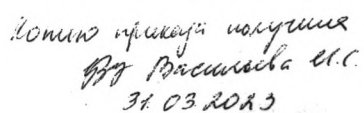 Копию приказа получила
Васильева И.С.
31.03.2023